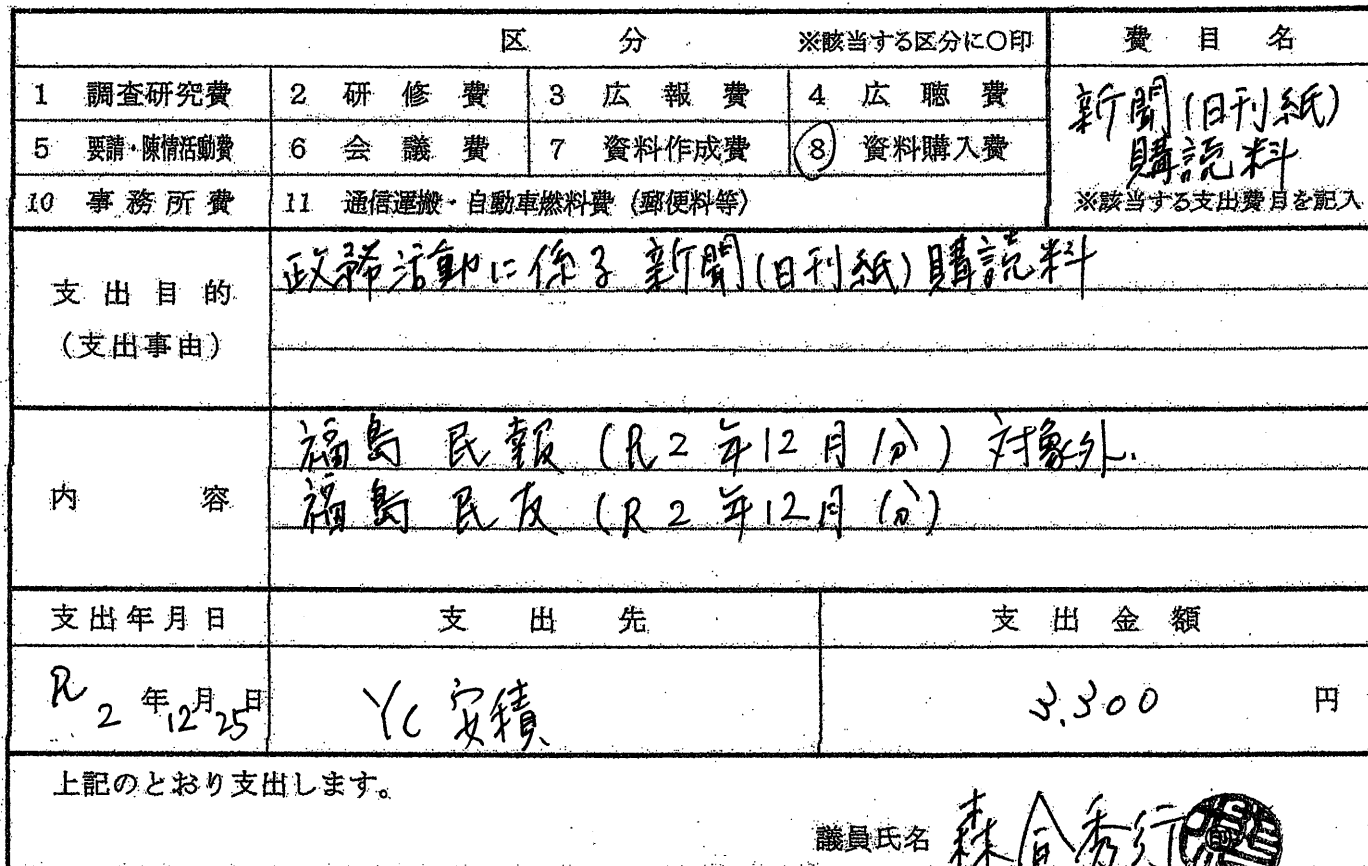 区 分 ※該当する区分に○印 費 目 名
1 調査研究費 2 研 修 費 3 広 報 費 4 広 聴 費 新聞(日刊紙)
5 要請・陳情活動費 6 会 議 費 7 資料作成費 8 資料購入費 購読料
10 事 務 所 費 11 通信運搬・自動車燃料費(郵便料等) ※該当する支出費目を記入
支 出 目 的
(支出事由)
政務活動に係る 新聞(日刊紙)購読料
内 容
福島 民報 (R2年12月分) 対象外.
福島 民友 (R2年12月分)
支出年月日 支 出 先 支 出 金 額
R2年12月25日 YC 安積 3,300 円
上記のとおり支出します。
議員氏名 森合秀行